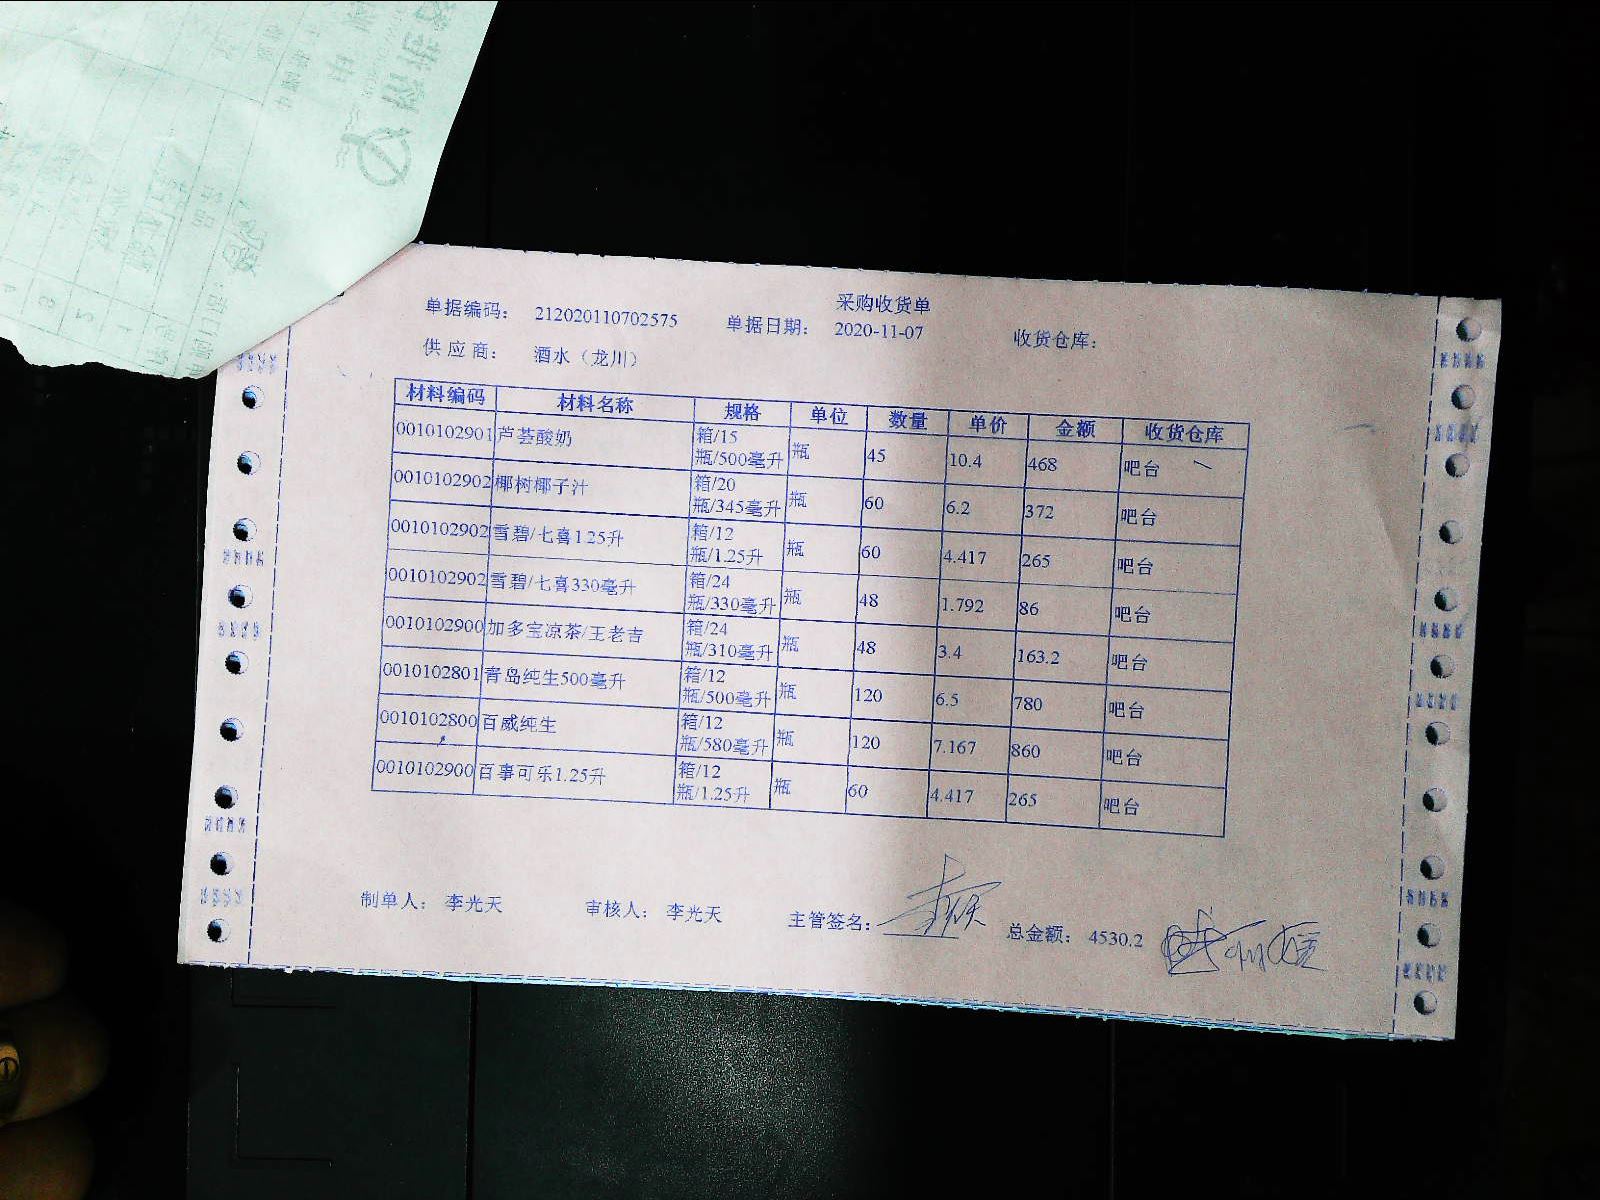 采购收货单
单据编码： 212020110702575 单据日期： 2020-11-07 收货仓库：
供应商： 酒水（龙川）
材料编码 材料名称 规格 单位 数量 单价 金额 收货仓库
0010102901 芦荟酸奶 箱/15瓶/500毫升 瓶 45 10.4 468 吧台
0010102902 椰树椰子汁 箱/20瓶/345毫升 瓶 60 6.2 372 吧台
0010102902 雪碧/七喜1.25升 箱/12瓶/1.25升 瓶 60 4.417 265 吧台
0010102902 雪碧/七喜330毫升 箱/24瓶/330毫升 瓶 48 1.792 86 吧台
0010102900 加多宝凉茶/王老吉 箱/24瓶/310毫升 瓶 48 3.4 163.2 吧台
0010102801 青岛纯生500毫升 箱/12瓶/500毫升 瓶 120 6.5 780 吧台
0010102800 百威纯生 箱/12瓶/580毫升 瓶 120 7.167 860 吧台
0010102900 百事可乐1.25升 箱/12瓶/1.25升 瓶 60 4.417 265 吧台
制单人： 李光天 审核人： 李光天 主管签名： 总金额： 4530.2